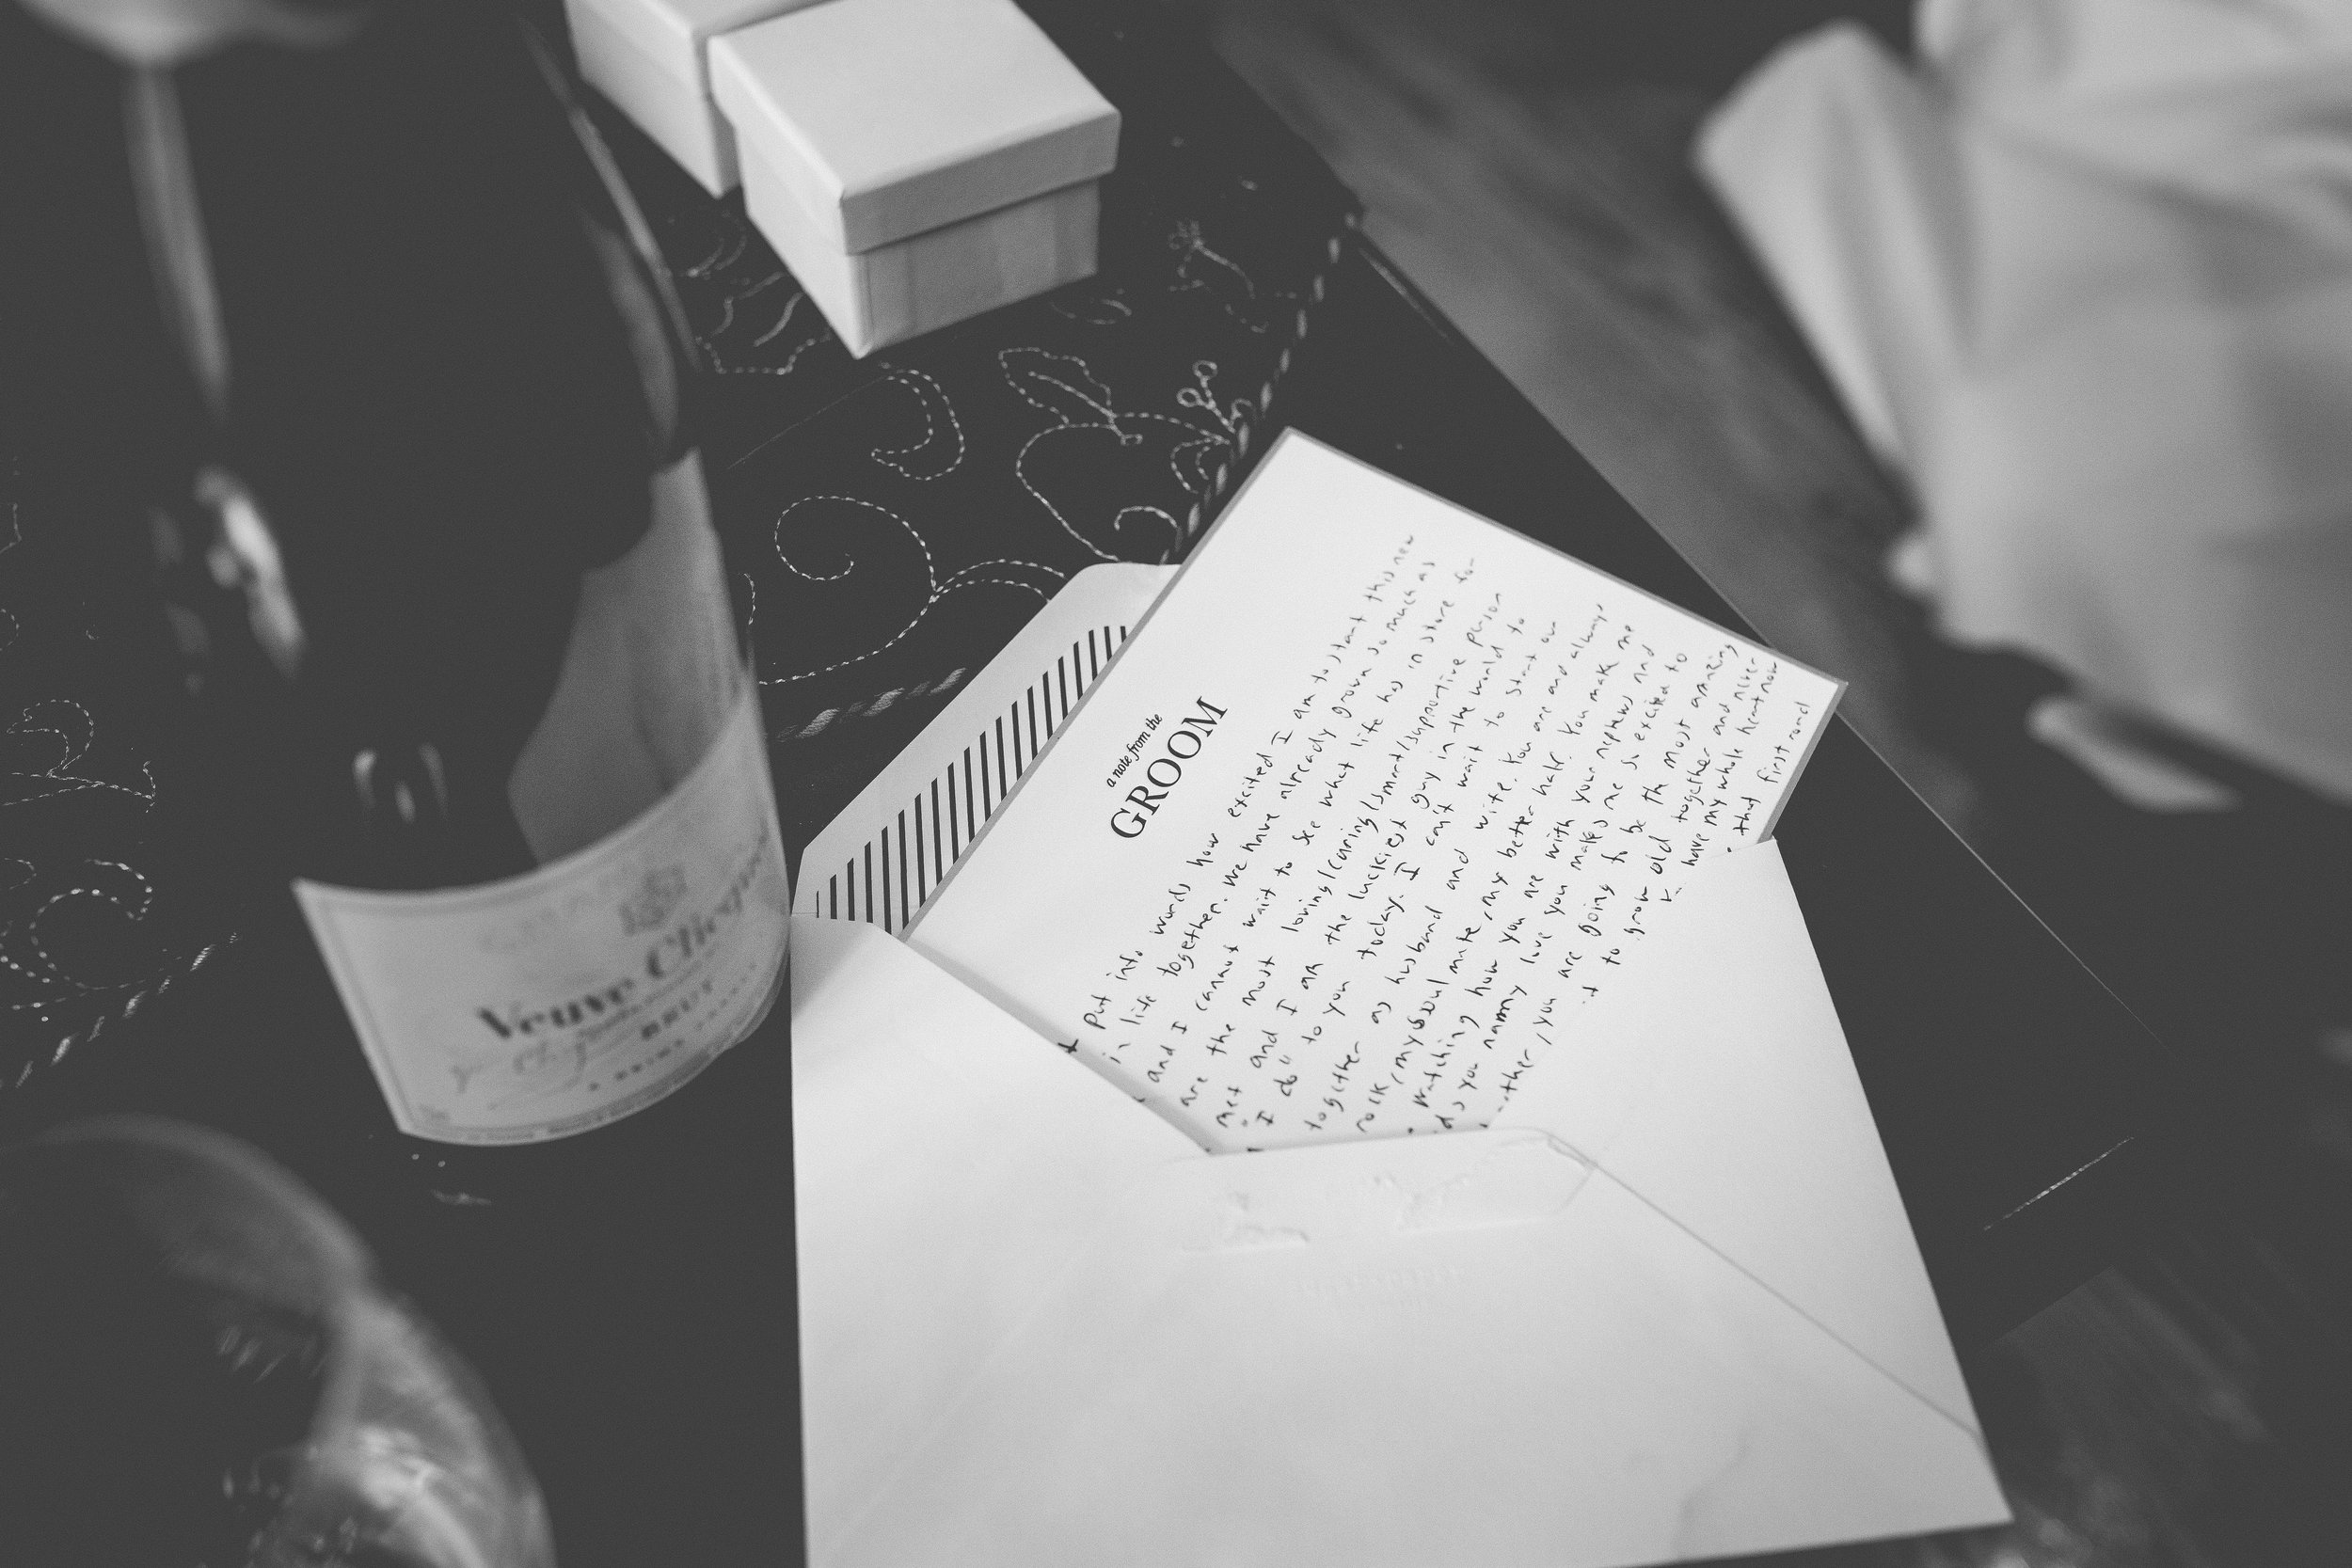 a note from the
GROOM
Put into words how excited I am to start this new
in life together. We have already grown so much as
and I cannot wait to see what life has in store for
are the most loving/caring/smart/supportive person
met and I am the luckiest guy in the world to
"I do" to you today. I can't wait to start our
together as husband and wife. You are and always
rock, my soul mate, my better half. You make me
watching how you are with your nephews and
you nanny love you makes me so excited to
you are going to be th most amazing
it to grow old together and never
have my whole heart now
that first road
Veuve Clicquot
BRUT